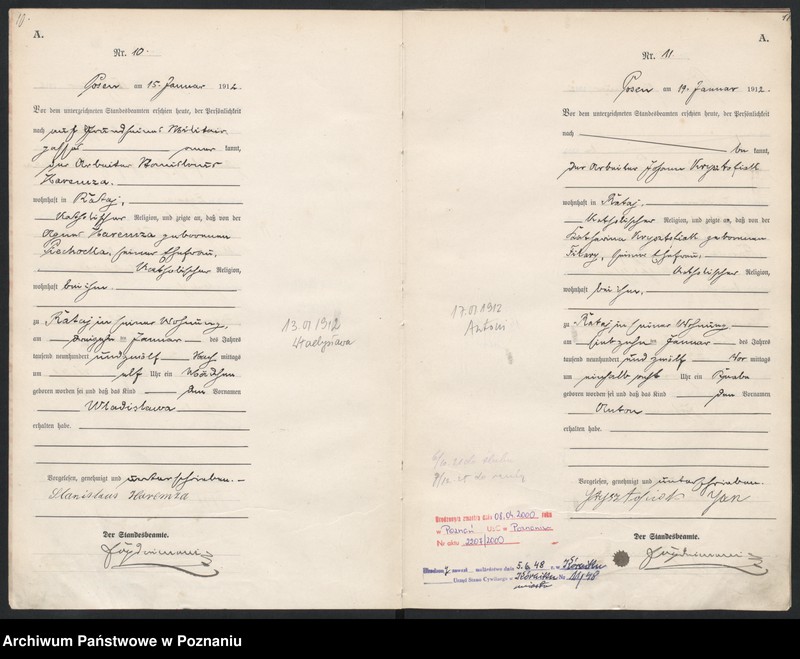 10.
A.
Nr. 10.
Posen am 15. Januar 1912.
Vor dem unterzeichneten Standesbeamten erschien heute, der Persönlichkeit
nach auf Grund seines Militair
passes kannt,
der Arbeiter Stanislaus
Haremza.
wohnhaft in Rataj,
katholischer Religion, und zeigte an, daß von der
Agnes Haremza geborenen
seiner Ehefrau,
katholischer Religion,
wohnhaft bei ihm.
zu Rataj in seiner Wohnung,
am dreizehn ten Januar des Jahres
tausend neunhundert und zwölf Nach mittags
um elf Uhr ein Mädchen
geboren worden sei und daß das Kind den Vornamen
Wladislawa
erhalten habe.
Vorgelesen, genehmigt und unterschrieben.
Stanislaus Haremza
Der Standesbeamte.
13.01 1912
Władysława
11
A.
Nr. 11
Posen am 19. Januar 1912.
Vor dem unterzeichneten Standesbeamten erschien heute, der Persönlichkeit
nach
be kannt,
der Arbeiter Johann
wohnhaft in Rataj.
katholischer Religion, und zeigte an, daß von der
Katharina geborenen
seiner Ehefrau,
katholischer Religion,
wohnhaft bei ihm,
zu Rataj in seiner Wohnung
am siebzehn ten Januar des Jahres
tausend neunhundert und zwölf Vor mittags
um einhalb acht Uhr ein Knabe
geboren worden sei und daß das Kind den Vornamen
Anton
erhalten habe.
Vorgelesen, genehmigt und unterschrieben.
Jan
Der Standesbeamte.
17.01 1912
Antoni
dnia 08.04 2000 roku
w Poznań USC w Poznaniu
Nr aktu 2207/2000
zawarł małżeństwo dnia 5.6.48 r. w
Urząd Stanu Cywilnego w Nr 111/48
Archiwum Państwowe w Poznaniu